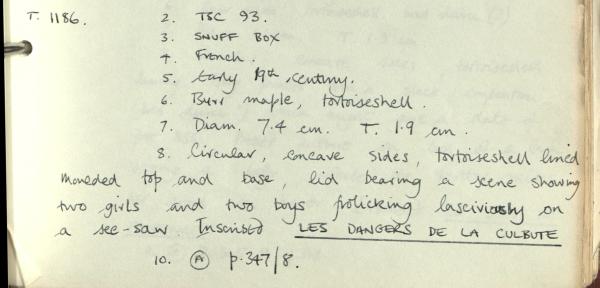 T. 1186. 2. TSC 93.
3. SNUFF BOX
4. French.
5. Early 19th century.
6. Burr maple, tortoiseshell.
7. Diam. 7.4 cm. T. 1.9 cm.
8. Circular, concave sides, tortoiseshell lined
moulded top and base, lid bearing a scene showing
two girls and two boys frolicking lasciviously on
a see-saw. Inscribed LES DANGERS DE LA CULBUTE
10. (A) p.347/8.